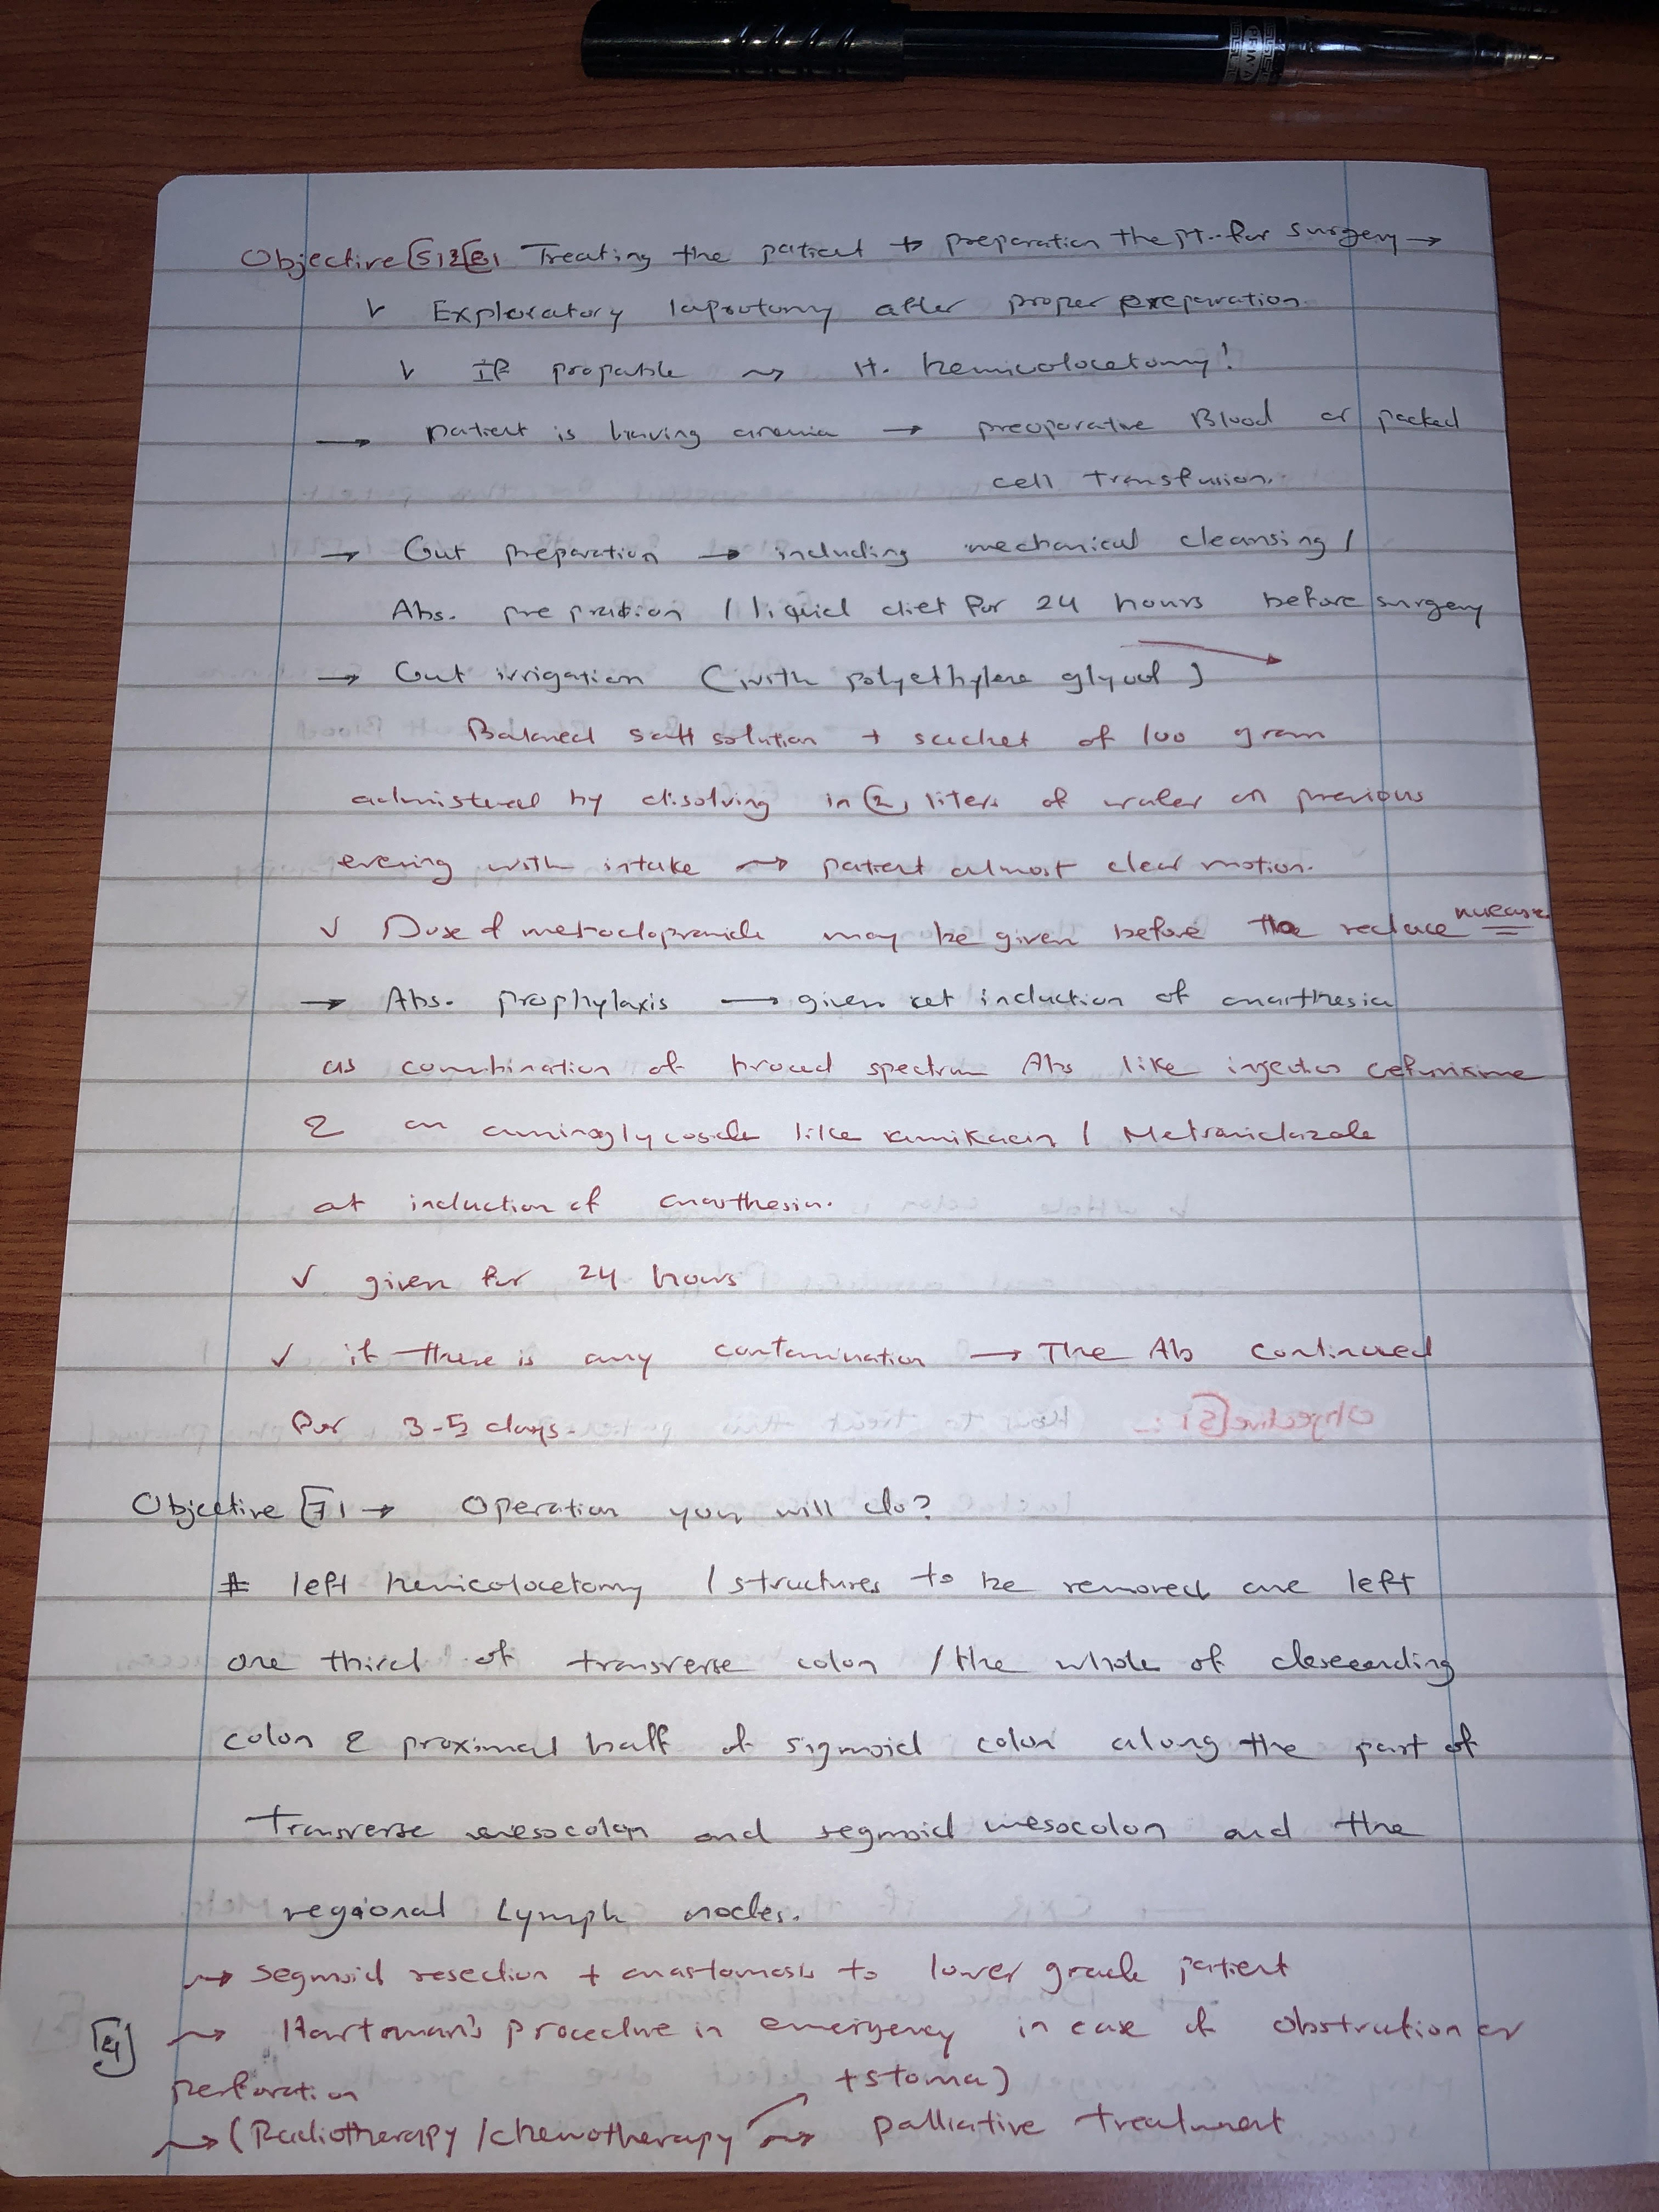 Objective [5] & [6] Treating the patient + preparation the pt. for surgery →
Exploratory laprotomy after proper preparation
If propable ⇝ lt. hemicolocetomy!
→ patient is having anemia → preoperative Blood or packed
cell transfusion.
→ Gut preparation → including mechanical cleansing /
Abs. prepration / liquid diet for 24 hours before surgery
→ Gut irrigation (with polyethylene glycol)
Balanced salt solution + sachet of 100 gram
administered by disolving in (2) liters of water on previous
evening with intake ⇝ patient almost clear motion.
✓ Dose of metoclopramide may be given before the reduce nausea
→ Abs. prophylaxis → given at induction of anasthesia
as combination of broad spectrum Abs like injection cefuroxime
& an aminoglycoside like amikacin / Metronidazole
at induction of anasthesia.
✓ given for 24 hours
✓ if there is any contamination → The Ab continued
For 3-5 days.
Objective [7] → Operation you will do?
# left hemicolocetomy / structures to be removed are left
one third of transverse colon / the whole of desceending
colon & proximal half of sigmoid colon along the part of
Transverse mesocolon and segmoid mesocolon and the
regional Lymph nodes.
⇝ segmoid resection + anastomosis to lower grade patient
⇝ Hartoman's procedure in emergency in case of obstruction or
perforation
+ stoma)
⇝ (Radiotherapy / chemotherapy ⇝ palliative treatment